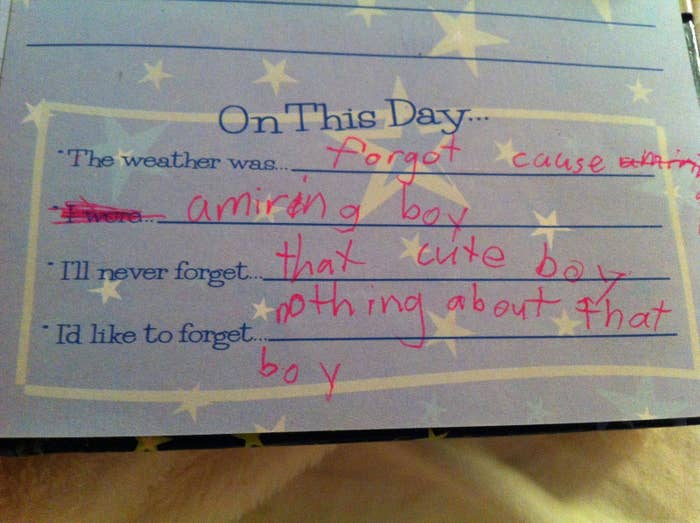 On This Day...
The weather was... forgot cause
I wore... amiring boy
I'll never forget... that cute boy
I'd like to forget... nothing about that
boy